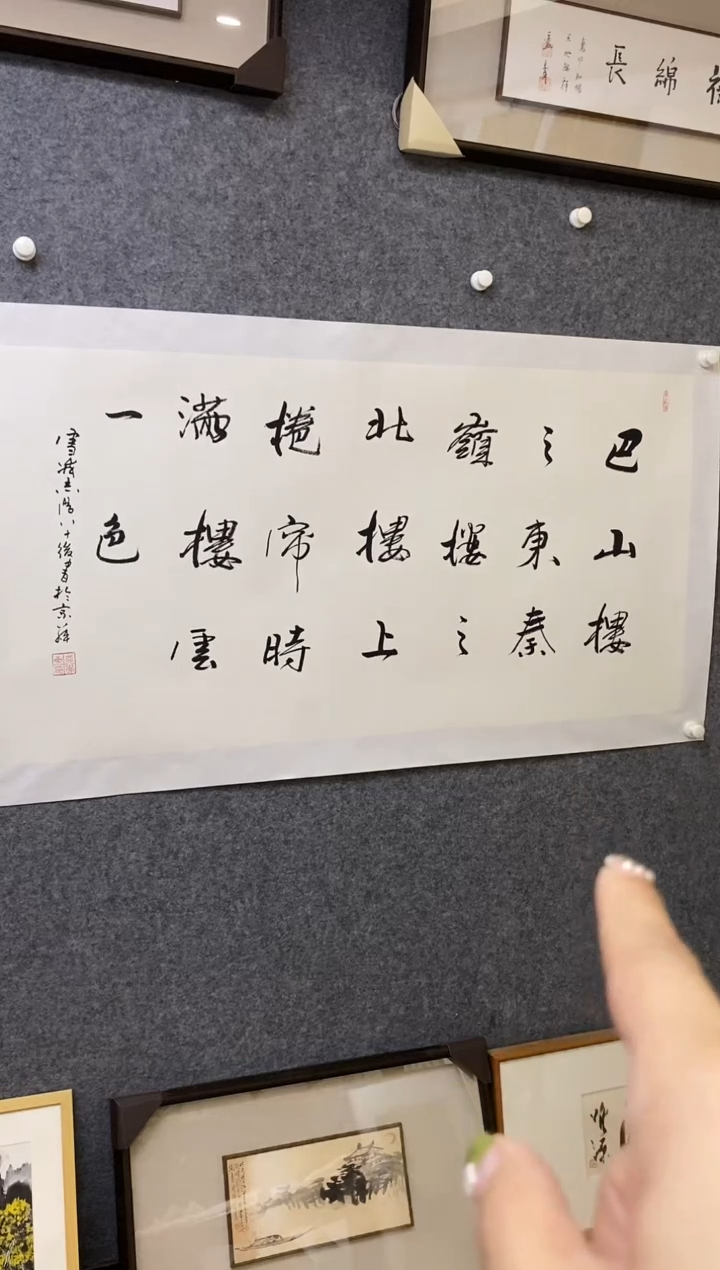 綿長
巴山樓
之東秦
嶺樓之
北樓上
捲帘時
滿樓雲
一色
八十後書於京華